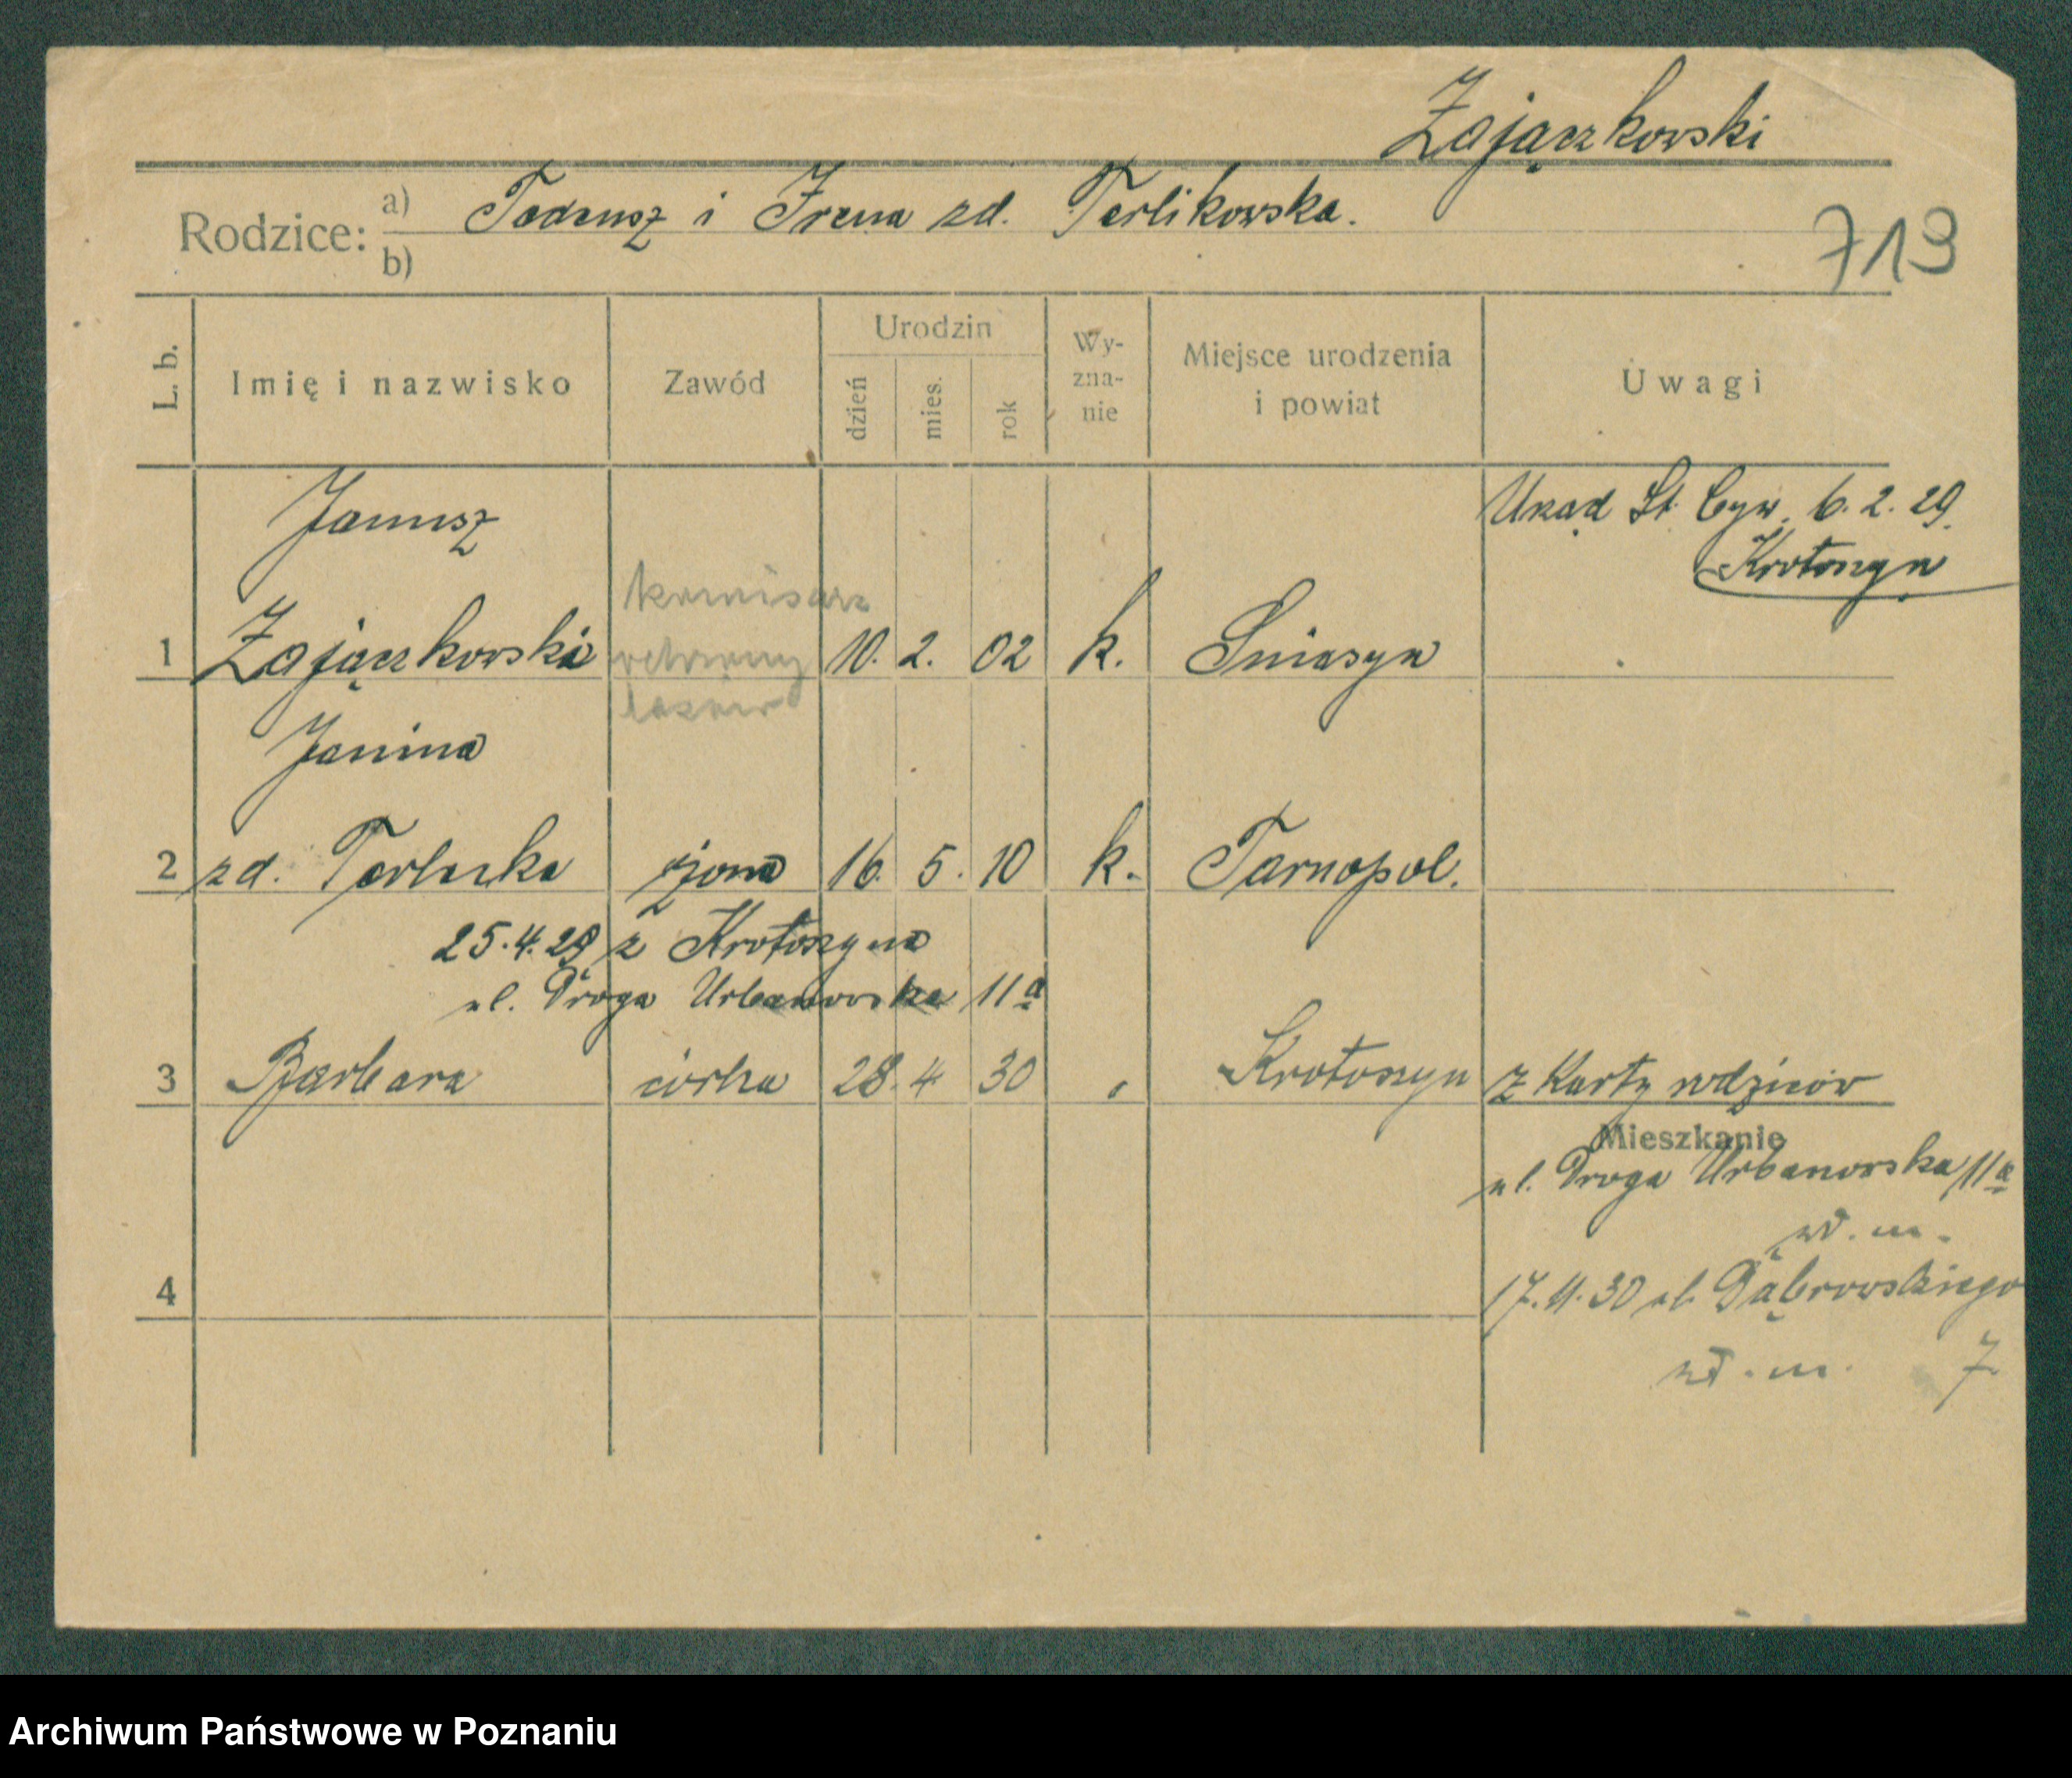 Zajączkowski
Rodzice: a) Tadeusz i Irena zd. Terlikowska.
b)
719
L. b. Imię i nazwisko Zawód Urodzin dzień mies. rok Wy-zna-nie Miejsce urodzenia i powiat Uwagi
Janusz
Urząd St. Cyw. 6. 2. 29.
Krotoszyn
komisarz
1 Zajączkowski ochrony 10. 2. 02 k. Śniatyn
lasów
Janina
2 zd. żona 16. 5. 10 k. Tarnopol.
25.4.29 z Krotoszyna
ul. Droga Urbanowska 11a
3 Barbara córka 28. 4 30 " Krotoszyn z karty rodziców
Mieszkanie
ul. Droga Urbanowska 11a
wł. m.
4
17.11.30 ul. Dąbrowskiego
7
wł. m.
Archiwum Państwowe w Poznaniu